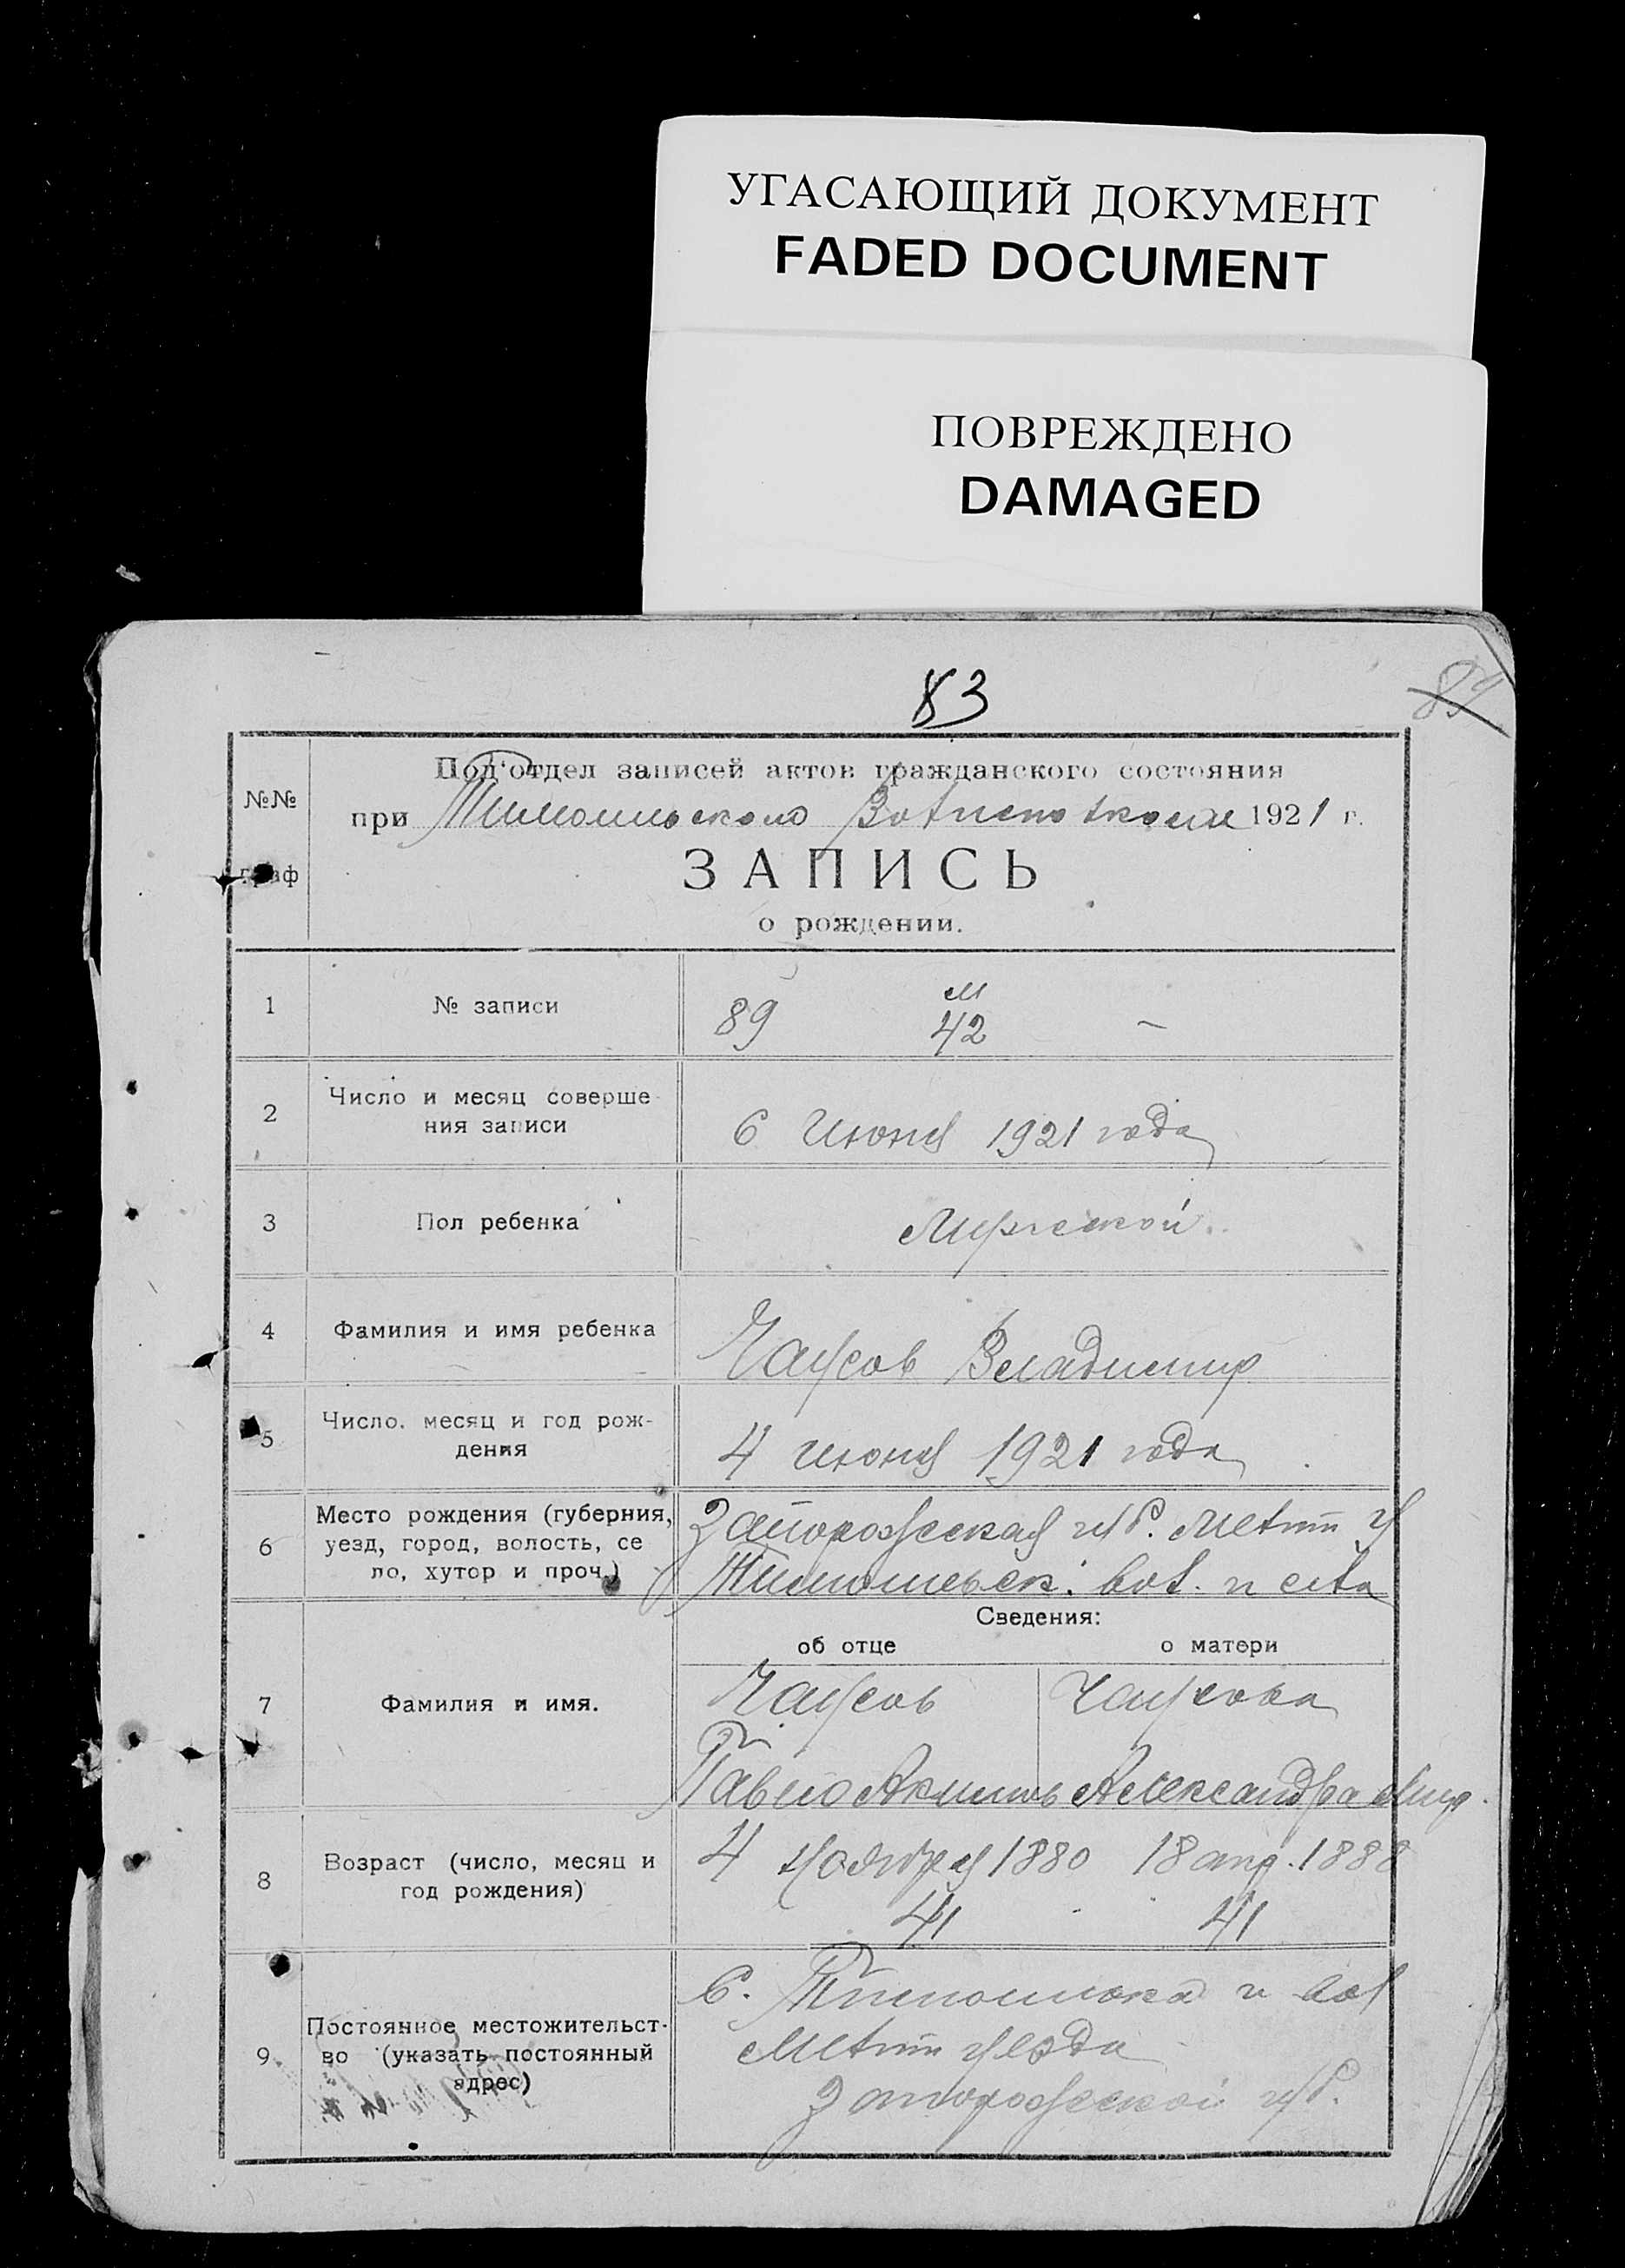 УГАСАЮЩИЙ ДОКУМЕНТ
FADED DOCUMENT
ПОВРЕЖДЕНО
DAMAGED
83
89
№№
граф
Под'отдел записей актов гражданского состояния
при Тимошовском Волисполкоме 1921 г.
ЗАПИСЬ
о рождении.
1 № записи 89 М 42 –
2 Число и месяц соверше-
ния записи
6 Июня 1921 года
3 Пол ребенка Мужской.
4 Фамилия и имя ребенка Чаусов Владимир
5 Число. месяц и год рож-
дения
4 июня 1921 года
6 Место рождения (губерния,
уезд, город, волость, се
ло, хутор и проч.)
Запорожская губ. Мелит у
Тимошевск. вол. и села
Сведения:
об отце о матери
7 Фамилия и имя. Чаусов Чаусова
Павло Александра
8 Возраст (число, месяц и
год рождения)
4 Ноября 1880 18 апр. 1888
41 41
9 Постоянное местожительст-
во (указать постоянный
адрес)
С. Тимошовка и вол
Мелит уезда
Запорожской губ.